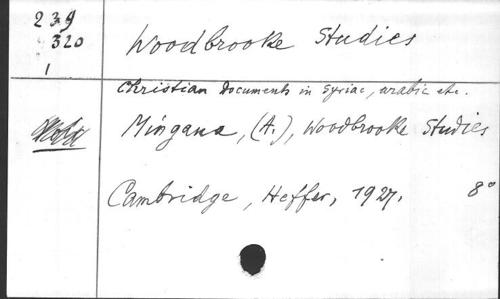 239
320
1
Woodbrooke Studies
Christian documents in Syriac, arabic etc.
Mingana, (A.), Woodbrooke Studies
Cambridge, Heffer, 1927. 8°